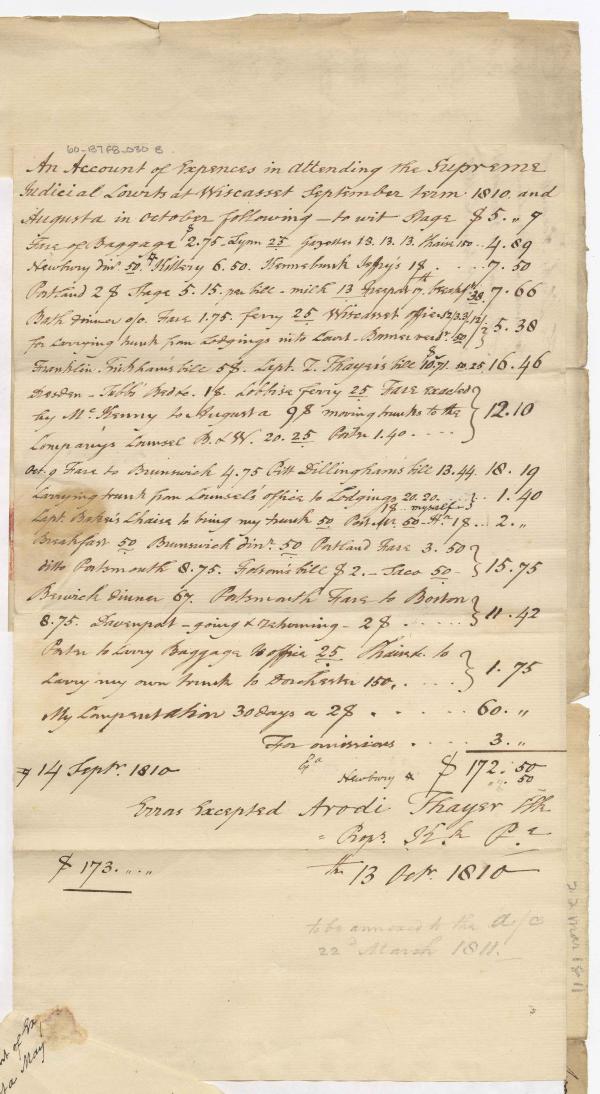 60-B7F8-D30 8
An Account of Expences in attending the Supreme
Judicial Courts at Wiscasset September term 1810 and
Augusta in October following – to wit Stage $5. „ 7
Fare of Baggage $2.75. Lynn 25 Gazettes 13. 13. 13. Chaise 150 .. 4.89
Newbury dinr. 50. Kittery 6.50. Kennebunk Jeffry's 18 .... 7.50
Portland 2$ Stage 5.15. per bill – milk 13 Freeport breakft. 38. 7.66
Bath dinner Fare 1.75. ferry 25 Wiscasset office
for Carrying trunk from Lodgings into Court. 50 } 5.38
Franklin. Kirkham's bill 58. Capt. T. Thayer's bill 16.46
Dresden – Tebb's Bed &c. 18. ferry 25 Fare exacted
by Mc.Kenny to Augusta 9$ moving trunks to the } 12.10
Company's Counsel B. & W. 20. 25 Porter 1.40. ....
Oct. 9 Fare to Brunswick 4.75 Pitt Dillingham's bill 13.44. 18.19
Carrying trunk from Counsel's office to Lodgings 20.20. ... 1.40
18 .. myself
Capt. Baker's Chaise to bring my trunk 50 50 18 .. 2. „
Breakfast 50 Brunswick dinr. 50 Portland Fare 3.50
ditto Portsmouth 8.75. Folsom's bill $2. – Saco 50 – } 15.75
Berwick dinner 67. Portsmouth Fare to Boston
8.75. Davenport – going & returning – 2$ ...... } 11.42
Porter to Carry Baggage to office 25 Chaise &c. to
Carry my own trunk to Dorchester 150, ..... } 1.75
My Compensation 30 days a 2$ ...... 60. „
For omissions .... 3. „
$172. 50
14 Septr. 1810
Newbury & „. 50
Errors Excepted Arodi Thayer
Props. K. Pa.
$173. „.„
13 Octr. 1810
to be annexed to the a/c
22d March 1811.
22 Mar 1811
nt of Ex
ta May